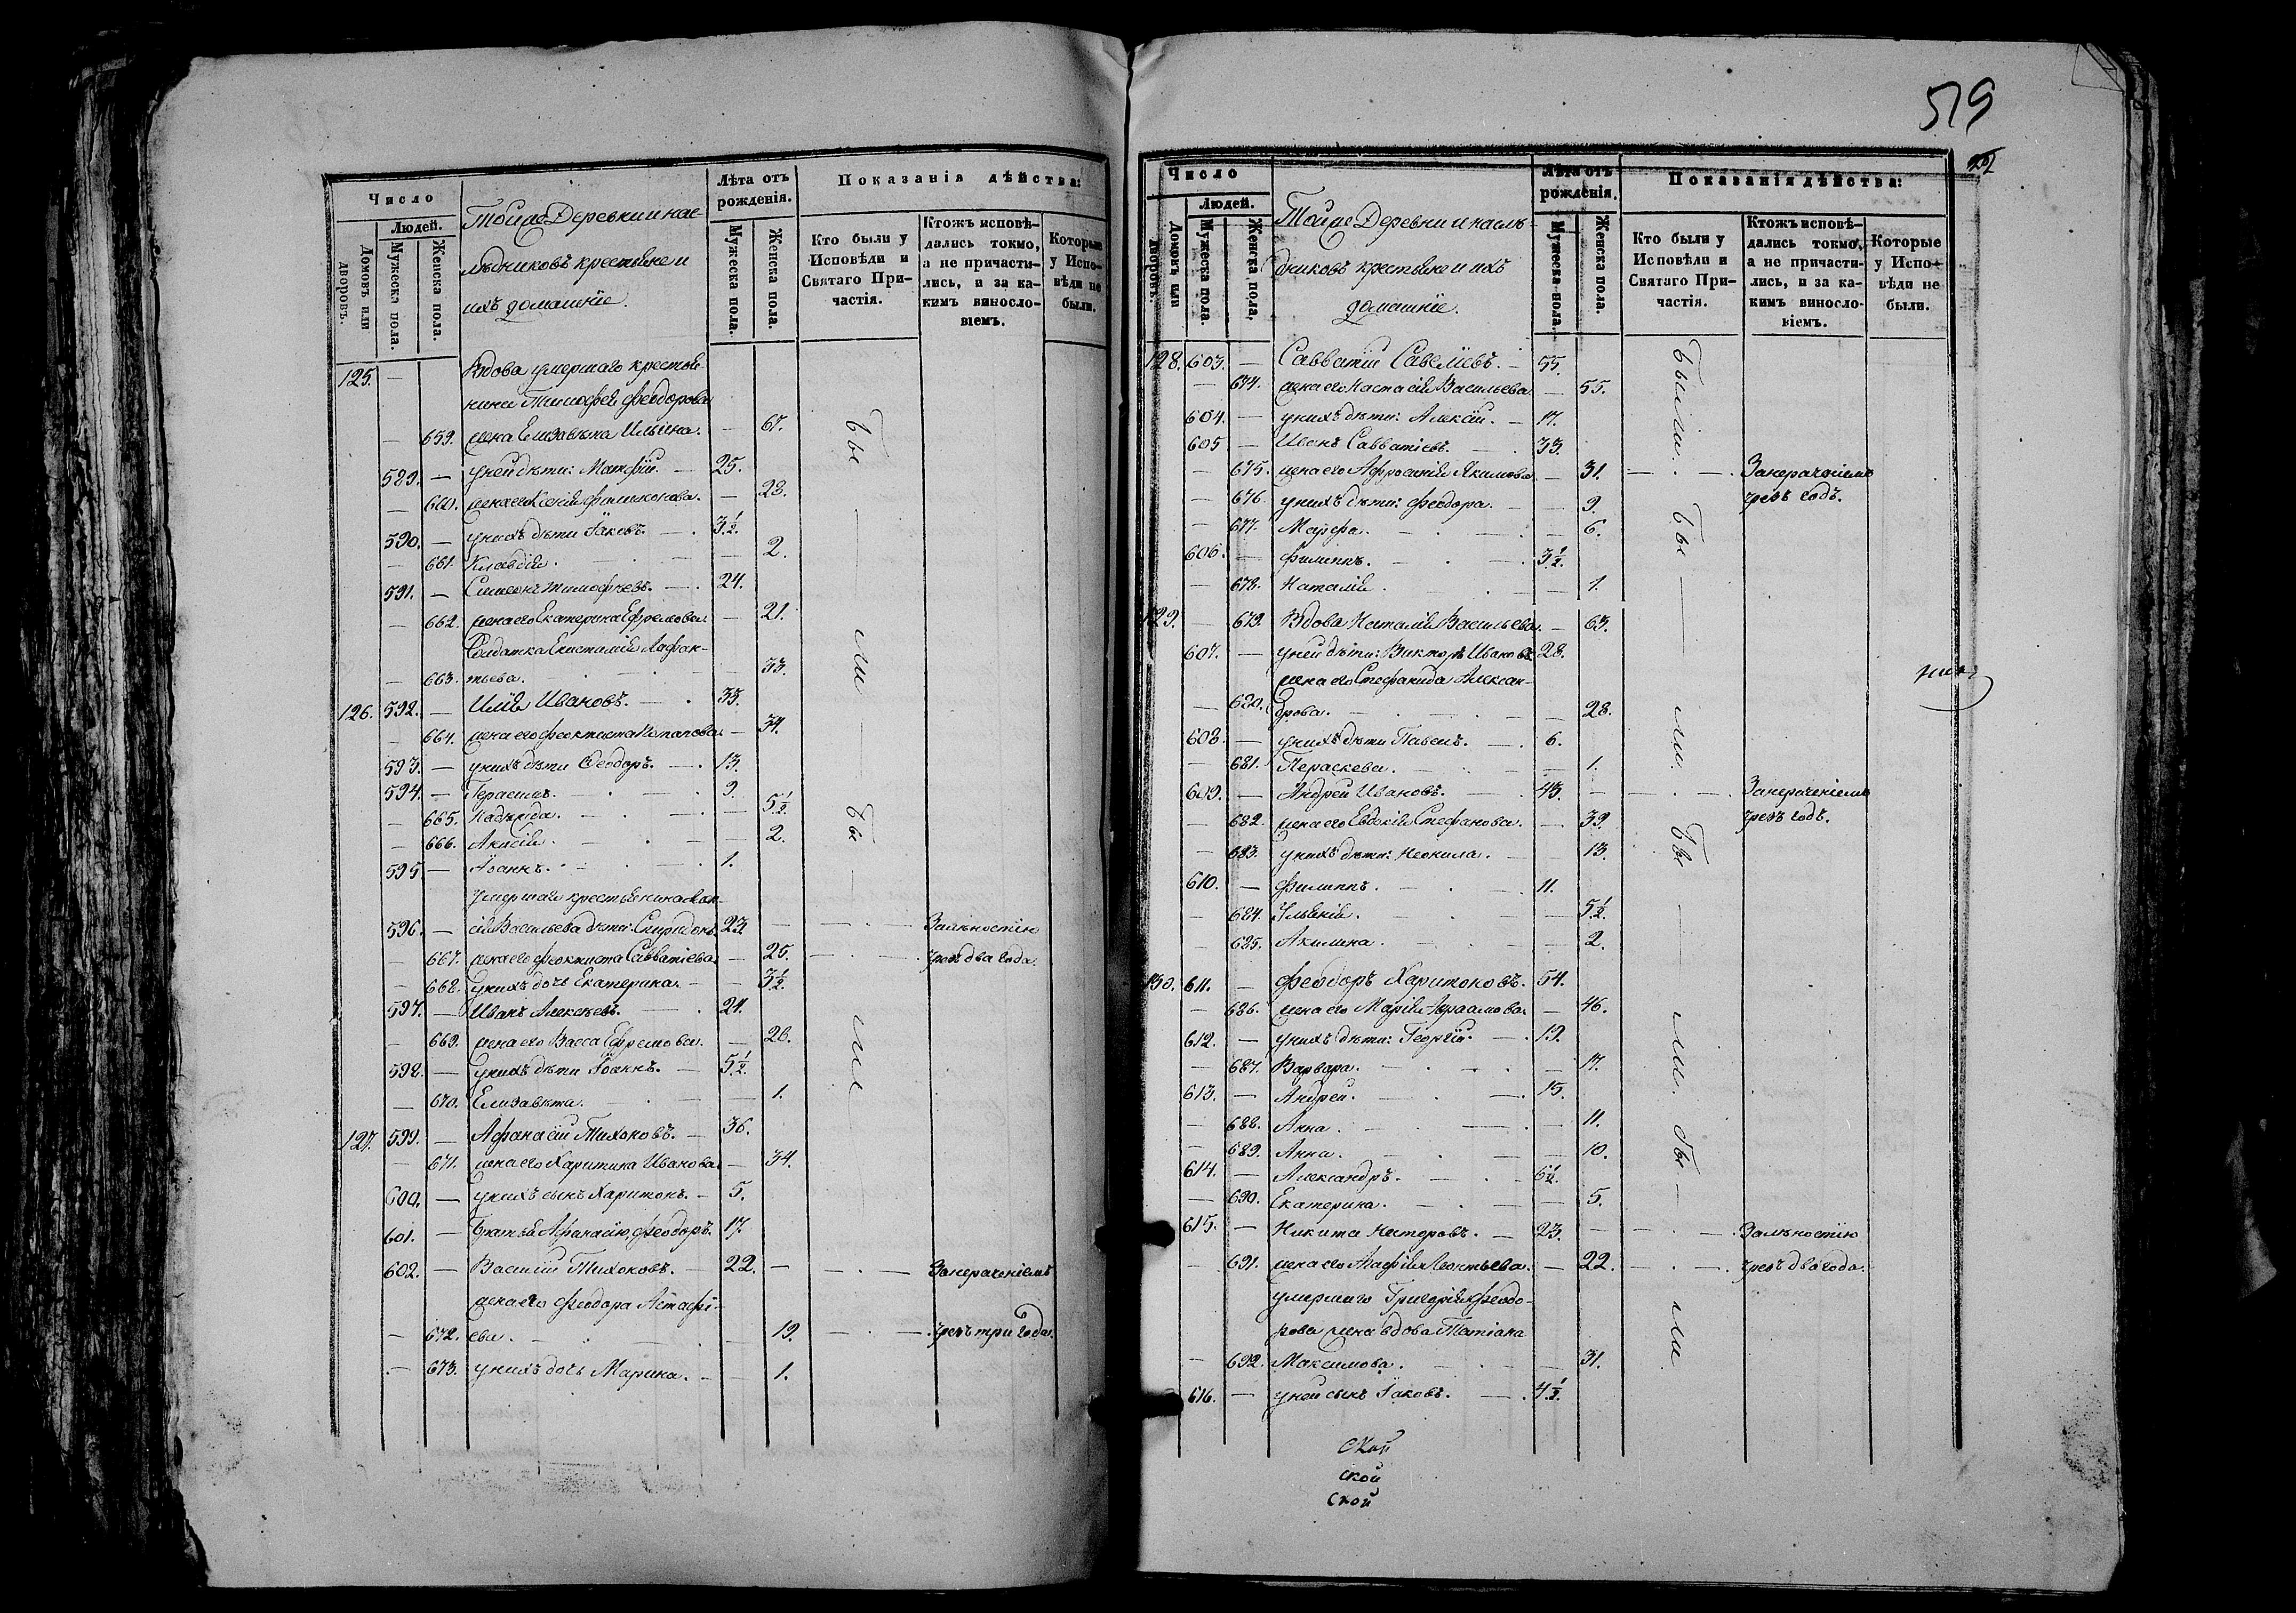 Число
Людей.
Домовъ или дворовъ.
Мужеска пола.
Женска пола.
Тойже Деревни и нас-
лѣдниковъ крестьяне и
ихъ домашніе.
Лѣта отъ рожденія.
Мужеска пола.
Женска пола.
Показанія дѣйства:
Кто были у Исповѣди и Святаго При-частія.
Ктожъ исповѣ-дались токмо, а не причасти-лись, и за ка-кимъ винсло-віемъ.
Которые у Испо-вѣди не были.
125. — Вдова умершаго крестья-
нина Тимофея Феодорова
— 659. жена Елизавета Ильина. — 67.
589. — у ней дѣти: Матфій. — 25.
— 660. жена его Ксенія Филимонова. — 23.
590. — у нихъ дѣти Іаковъ. — 3½.
— 661. Клавдія. — 2.
591. — Симеонъ Тимофеевъ. — 24.
— 662. жена его Екатерина Ефремова. — 21.
Солдатка
— 663. тьева. 33.
126. 592. — Илія Ивановъ. — 35.
— 664. жена его Феоктиста Потапова. — 34.
593. — у нихъ дѣти Феодоръ. — 13.
594. — Герасимъ. — 9.
— 665. Надежда. — 5½.
— 666. — 2.
595 — Іоаннъ. — 1.
Умершаго крестьянина Алек-
596. — сія Васильева дѣти: Спиридонъ. 23. — За лѣностію
— 667. жена его Феоктиста Савватіева. — 25. — чрезъ два года.
— 668. у нихъ дочь Екатерина. — 3½.
597. — Иванъ Алексеевъ. — 24.
— 669. жена его Васса Ефремова. — 26.
598. — у нихъ дѣти Іоаннъ. — 5½.
— 670. Елизавета. — 1.
127. 599. — Афанасій Тихоновъ. — 36.
— 671. жена его Харитина Иванова. — 34.
600. — у нихъ сынъ Харитонъ. — 5.
601. — Братья Афанасію, Феодоръ. 17.
602. — Василій Тихоновъ. — 22. — За нераченіемъ
жена его Феодора Астафі-
— 672. ева. — 19. — чрезъ три года.
— 673. у нихъ дочь Марина. — 1.
Бы — ли — Бы — ли
519
Число
Людей.
Домовъ или дворовъ.
Мужеска пола.
Женска пола.
Тойже Деревни и наслѣ-
дниковъ крестьяне и ихъ
домашніе.
Лѣта отъ рожденія.
Мужеска пола.
Женска пола.
Показанія дѣйства:
Кто были у Исповѣди и Святаго При-частія.
Ктожъ исповѣ-дались токмо, а не причасти-лись, и за ка-кимъ винсло-віемъ.
Которые у Испо-вѣди не были.
128. 603. — Савватій Савеліевъ. — 55.
— 674. жена его Настасія Васильева. — 55.
604. — у нихъ дѣти: Алексій. — 17.
605 — Иванъ Савватіевъ. 33.
— 675. жена его Афросинія Якимова — 31. — За нераченіемъ
— 676. у нихъ дѣти: Феодора. — 9. чрезъ годъ.
— 677. Марфа. — 6.
606. — Филиппъ. — 3½.
— 678. Наталія. — 1.
129. — 679. Вдова Наталія Васильева. — 63.
607. — у ней дѣти: Викторъ Ивановъ 28.
жена его Стефанида Алексан-
— 680. дрова. — 28.
608. — у нихъ дѣти Павелъ. — 6.
— 681. Параскева. — 1.
609. — Андрей Ивановъ. — 43. — За нераченіемъ
— 682. жена его Евдокія Стефанова. — 39. чрезъ годъ.
— 683. у нихъ дѣти: Неонила. — 13.
610. — Филиппъ. — 11.
— 684. Уліанія. — 5½.
— 685. Акилина. — 2.
130. 611. — Феодоръ Харитоновъ. 54.
— 686. жена его Марія Авраамова. — 46.
612. — у нихъ дѣти: Георгій. — 19.
— 687. Варвара. — 17.
613. — Андрей. — 15.
— 688. Анна. — 11.
— 689. Анна. — 10.
614. — Александръ. — 6½.
— 690. Екатерина. — 5.
615. — Никита Несторовъ. — 23. — За лѣностію
— 691. жена его Агафія Леонтьева. — 22. — чрезъ два года.
умершаго Григорія Феодо-
рова жена вдова Татіана
— 692. Максимова. — 31.
616. — у ней сынъ Іаковъ. — 4½.
Были. Бы — ли. Бы — ли. Бы — ли
ской
ской
ской